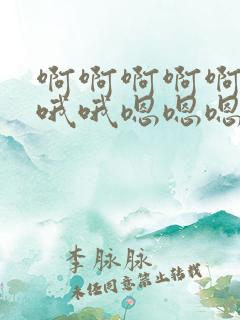 啊啊啊啊啊
哦哦嗯嗯嗯
李脉脉
未经同意禁止转载